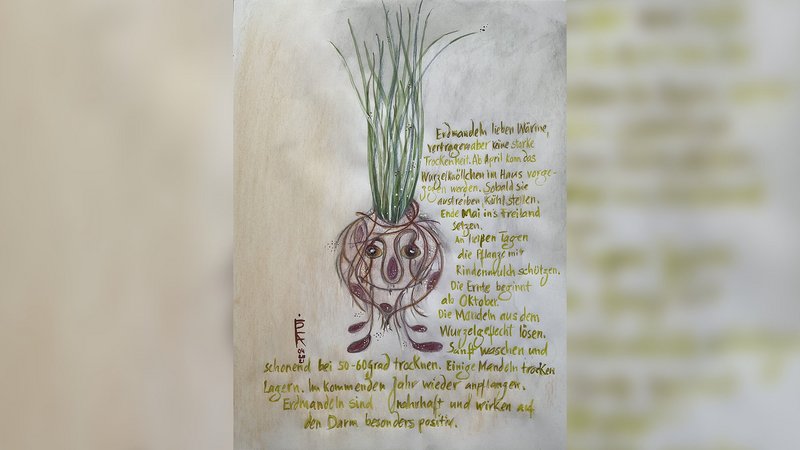 Erdmandeln lieben Wärme,
vertragen aber keine starke
Trockenheit. Ab April kann das
Wurzelknöllchen im Haus vorge-
zogen werden. Sobald sie
austreiben, kühl stellen.
Ende Mai ins Freiland
setzen.
An heißen Tagen
die Pflanze mit
Rindenmulch schützen.
Die Ernte beginnt
ab Oktober.
Die Mandeln aus dem
Wurzelgeflecht lösen.
Sanft waschen und
schonend bei 50-60 Grad trocknen. Einige Mandeln trocken
Lagern. Im kommenden Jahr wieder anpflanzen.
Erdmandeln sind nahrhaft und wirken auf
den Darm besonders positiv.